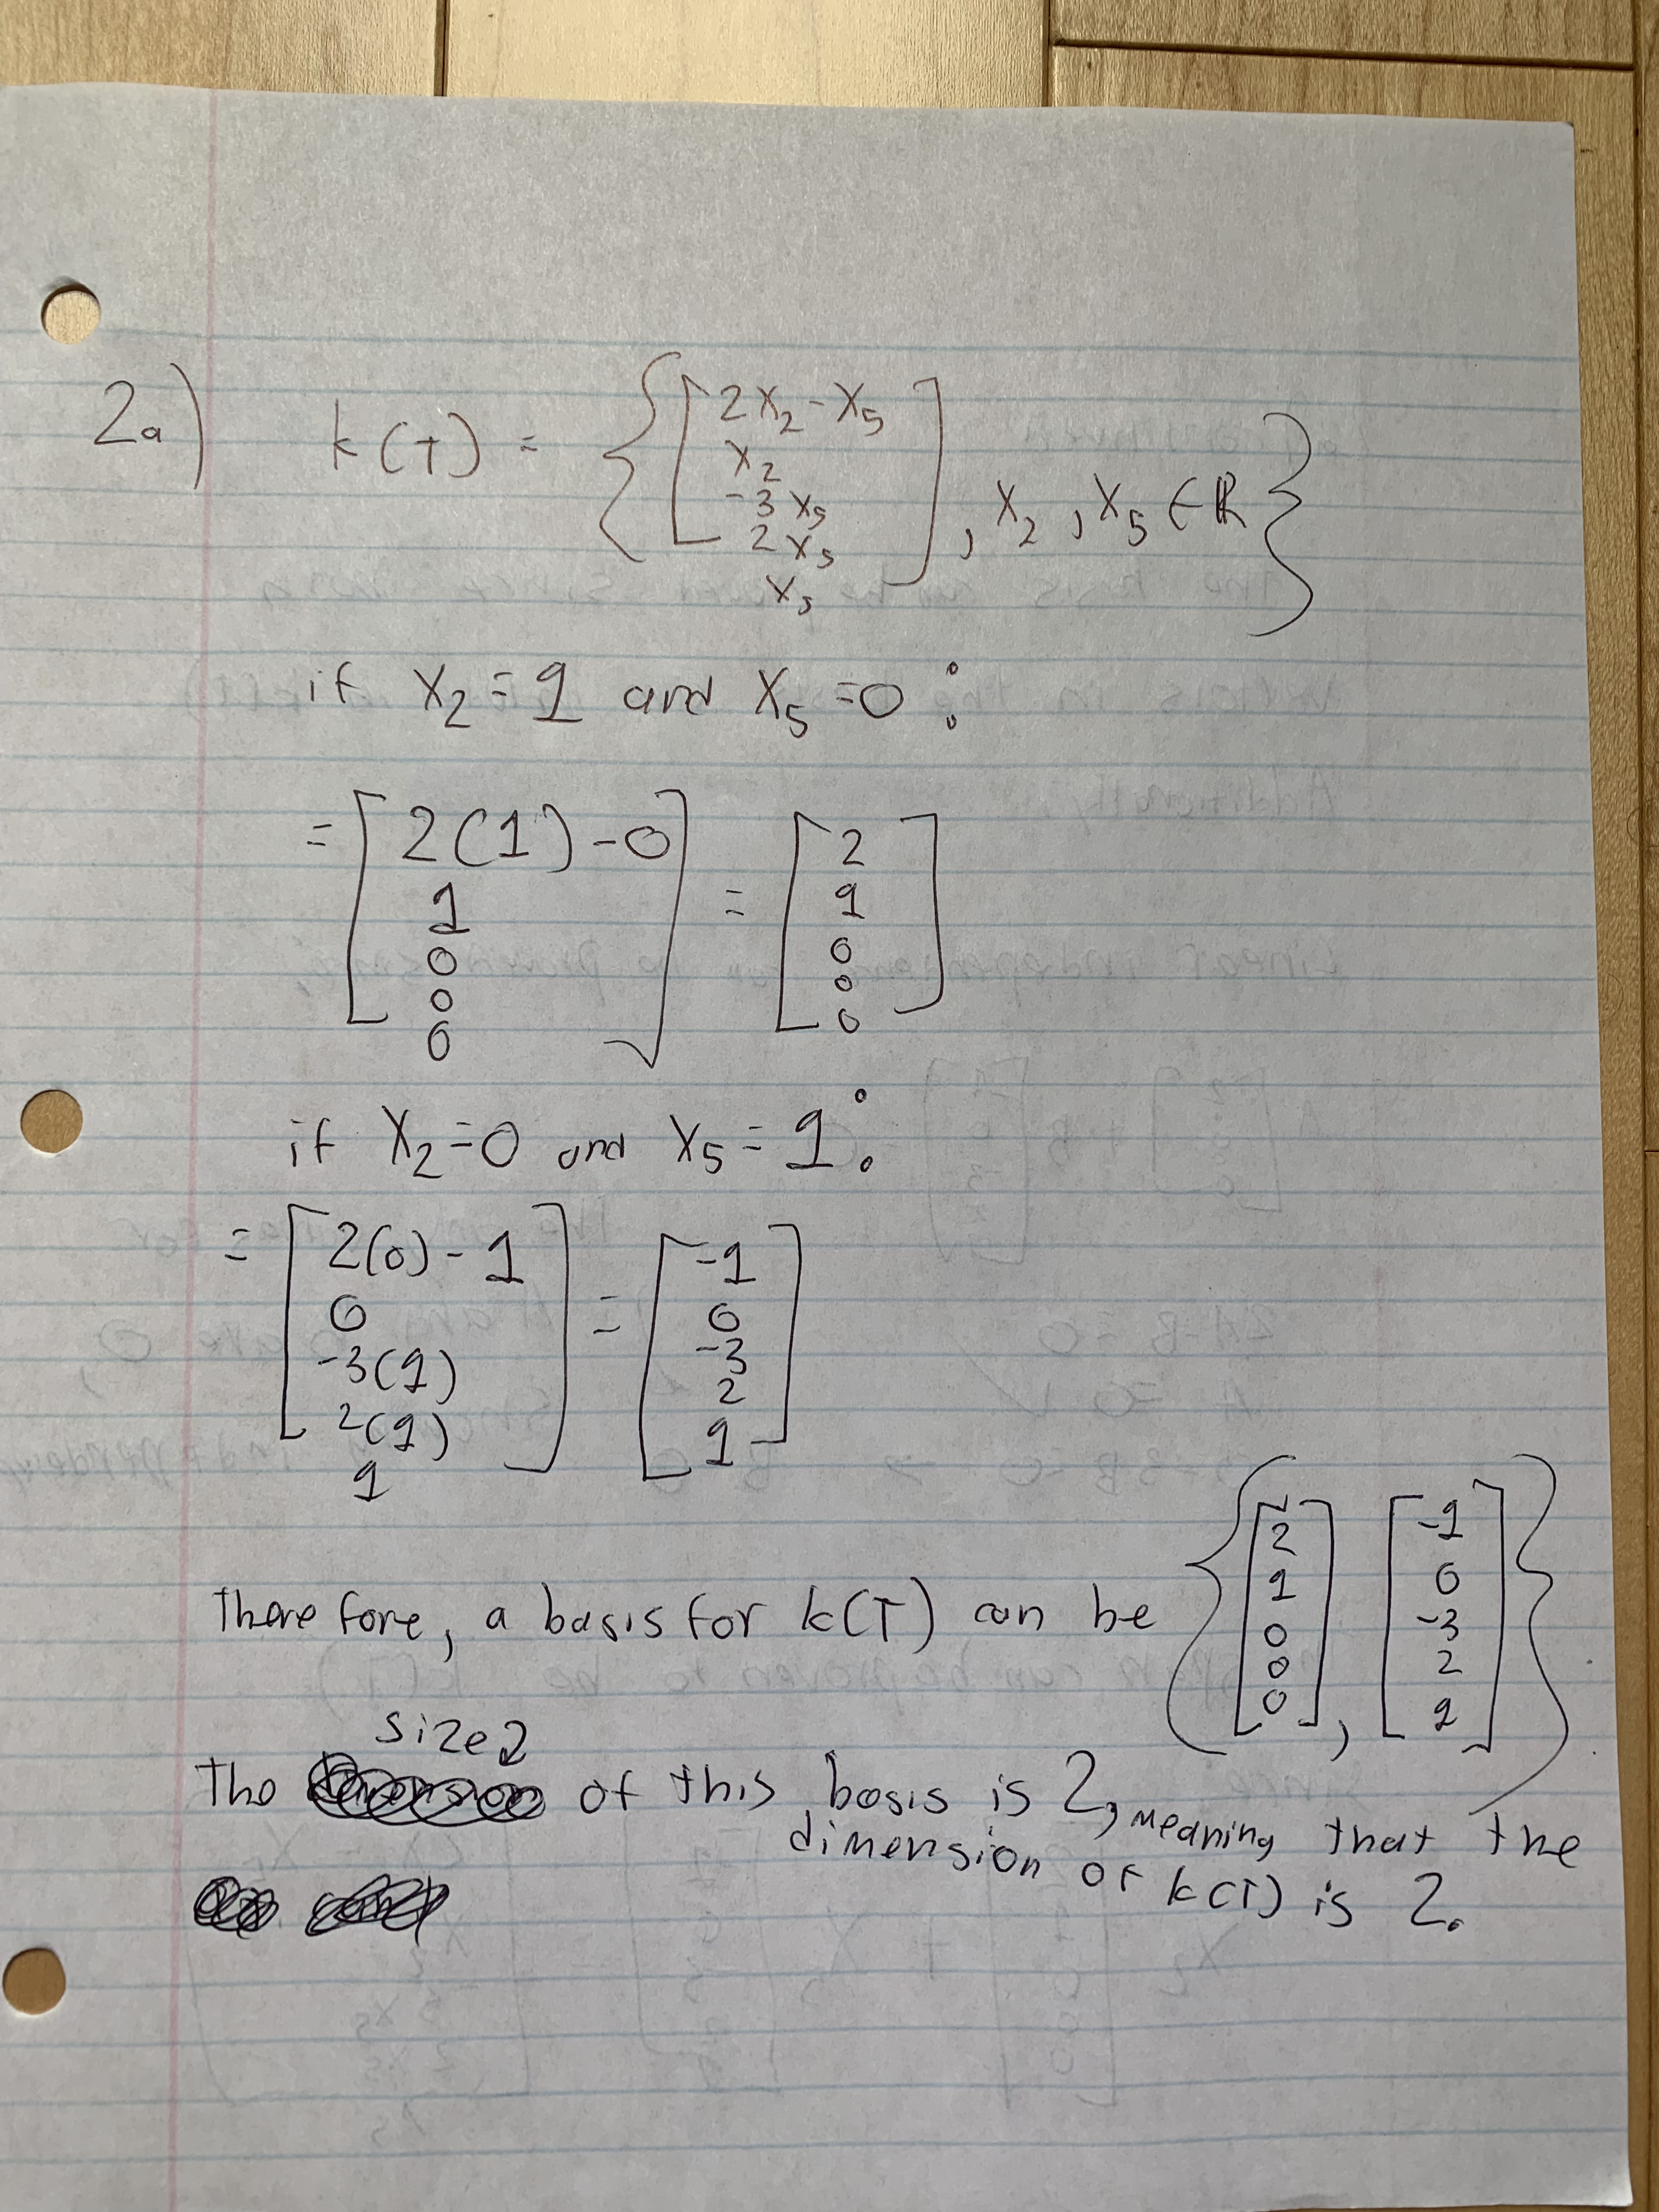 2a) k(T) = { [ 2x₂ - x₅
x₂
-3x₅
2x₅
x₅ ] , x₂, x₅ ∈ ℝ }
if x₂ = 1 and x₅ = 0 :
= [ 2(1) - 0
1
0
0
0 ] = [ 2
1
0
0
0 ]
if x₂ = 0 and x₅ = 1 :
= [ 2(0) - 1
0
-3(1)
2(1)
1 ] = [ -1
0
-3
2
1 ]
therefore, a basis for k(T) can be { [ 2
1
0
0
0 ] , [ -1
0
-3
2
1 ] }
size
The of this basis is 2, meaning that the
dimension of k(T) is 2.